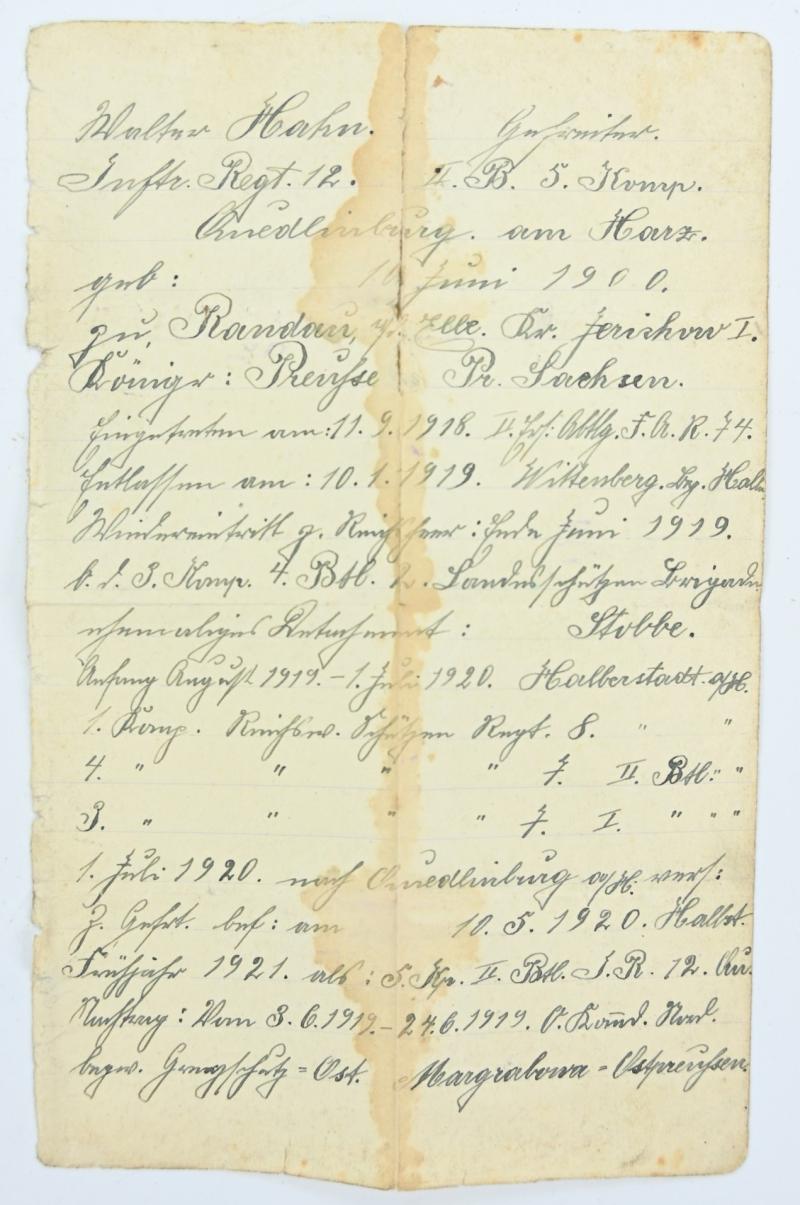 Walter Hahn. Gefreiter.
Inftr. Regt. 12. II. B. 5. Komp.
Quedlinburg. am Harz.
geb: 10 Juni 1900.
zu, Randau, Elbe. Kr. Jerichow I.
Königr: Preuße Pr. Sachsen.
Eingetreten am: 11. 9. 1918. II. Ers: Abtlg. F. A. R. 74.
Entlassen am: 10. 1. 1919. Wittenberg. Bz. Halle
Wiedereintritt z. Reichsheer: Ende Juni 1919.
b. d. 3. Komp. 4. Btl. 2. Landesschützen Brigade
ehemaliges Detachement: Stobbe.
Anfang August 1919. – 1. Juli 1920. Halberstadt. a/H.
1. Komp. Reichsw. Schützen Regt. 8. " "
4. " " " " 7. II Btl: " "
3. " " " " 7. I. " " "
1. Juli 1920. nach Quedlinburg a/H. vers:
z. Gefrt. bef: am 10. 5. 1920. Halbst.
Frühjahr 1921. als: 5. Kp. II. Btl. I. R. 12. Qu.
Nachtrag: Vom 3. 6. 1919. – 24. 6. 1919. O. Komd. Nord.
bezw. Grenzschutz = Ost. Margrabowa = Ostpreußen.